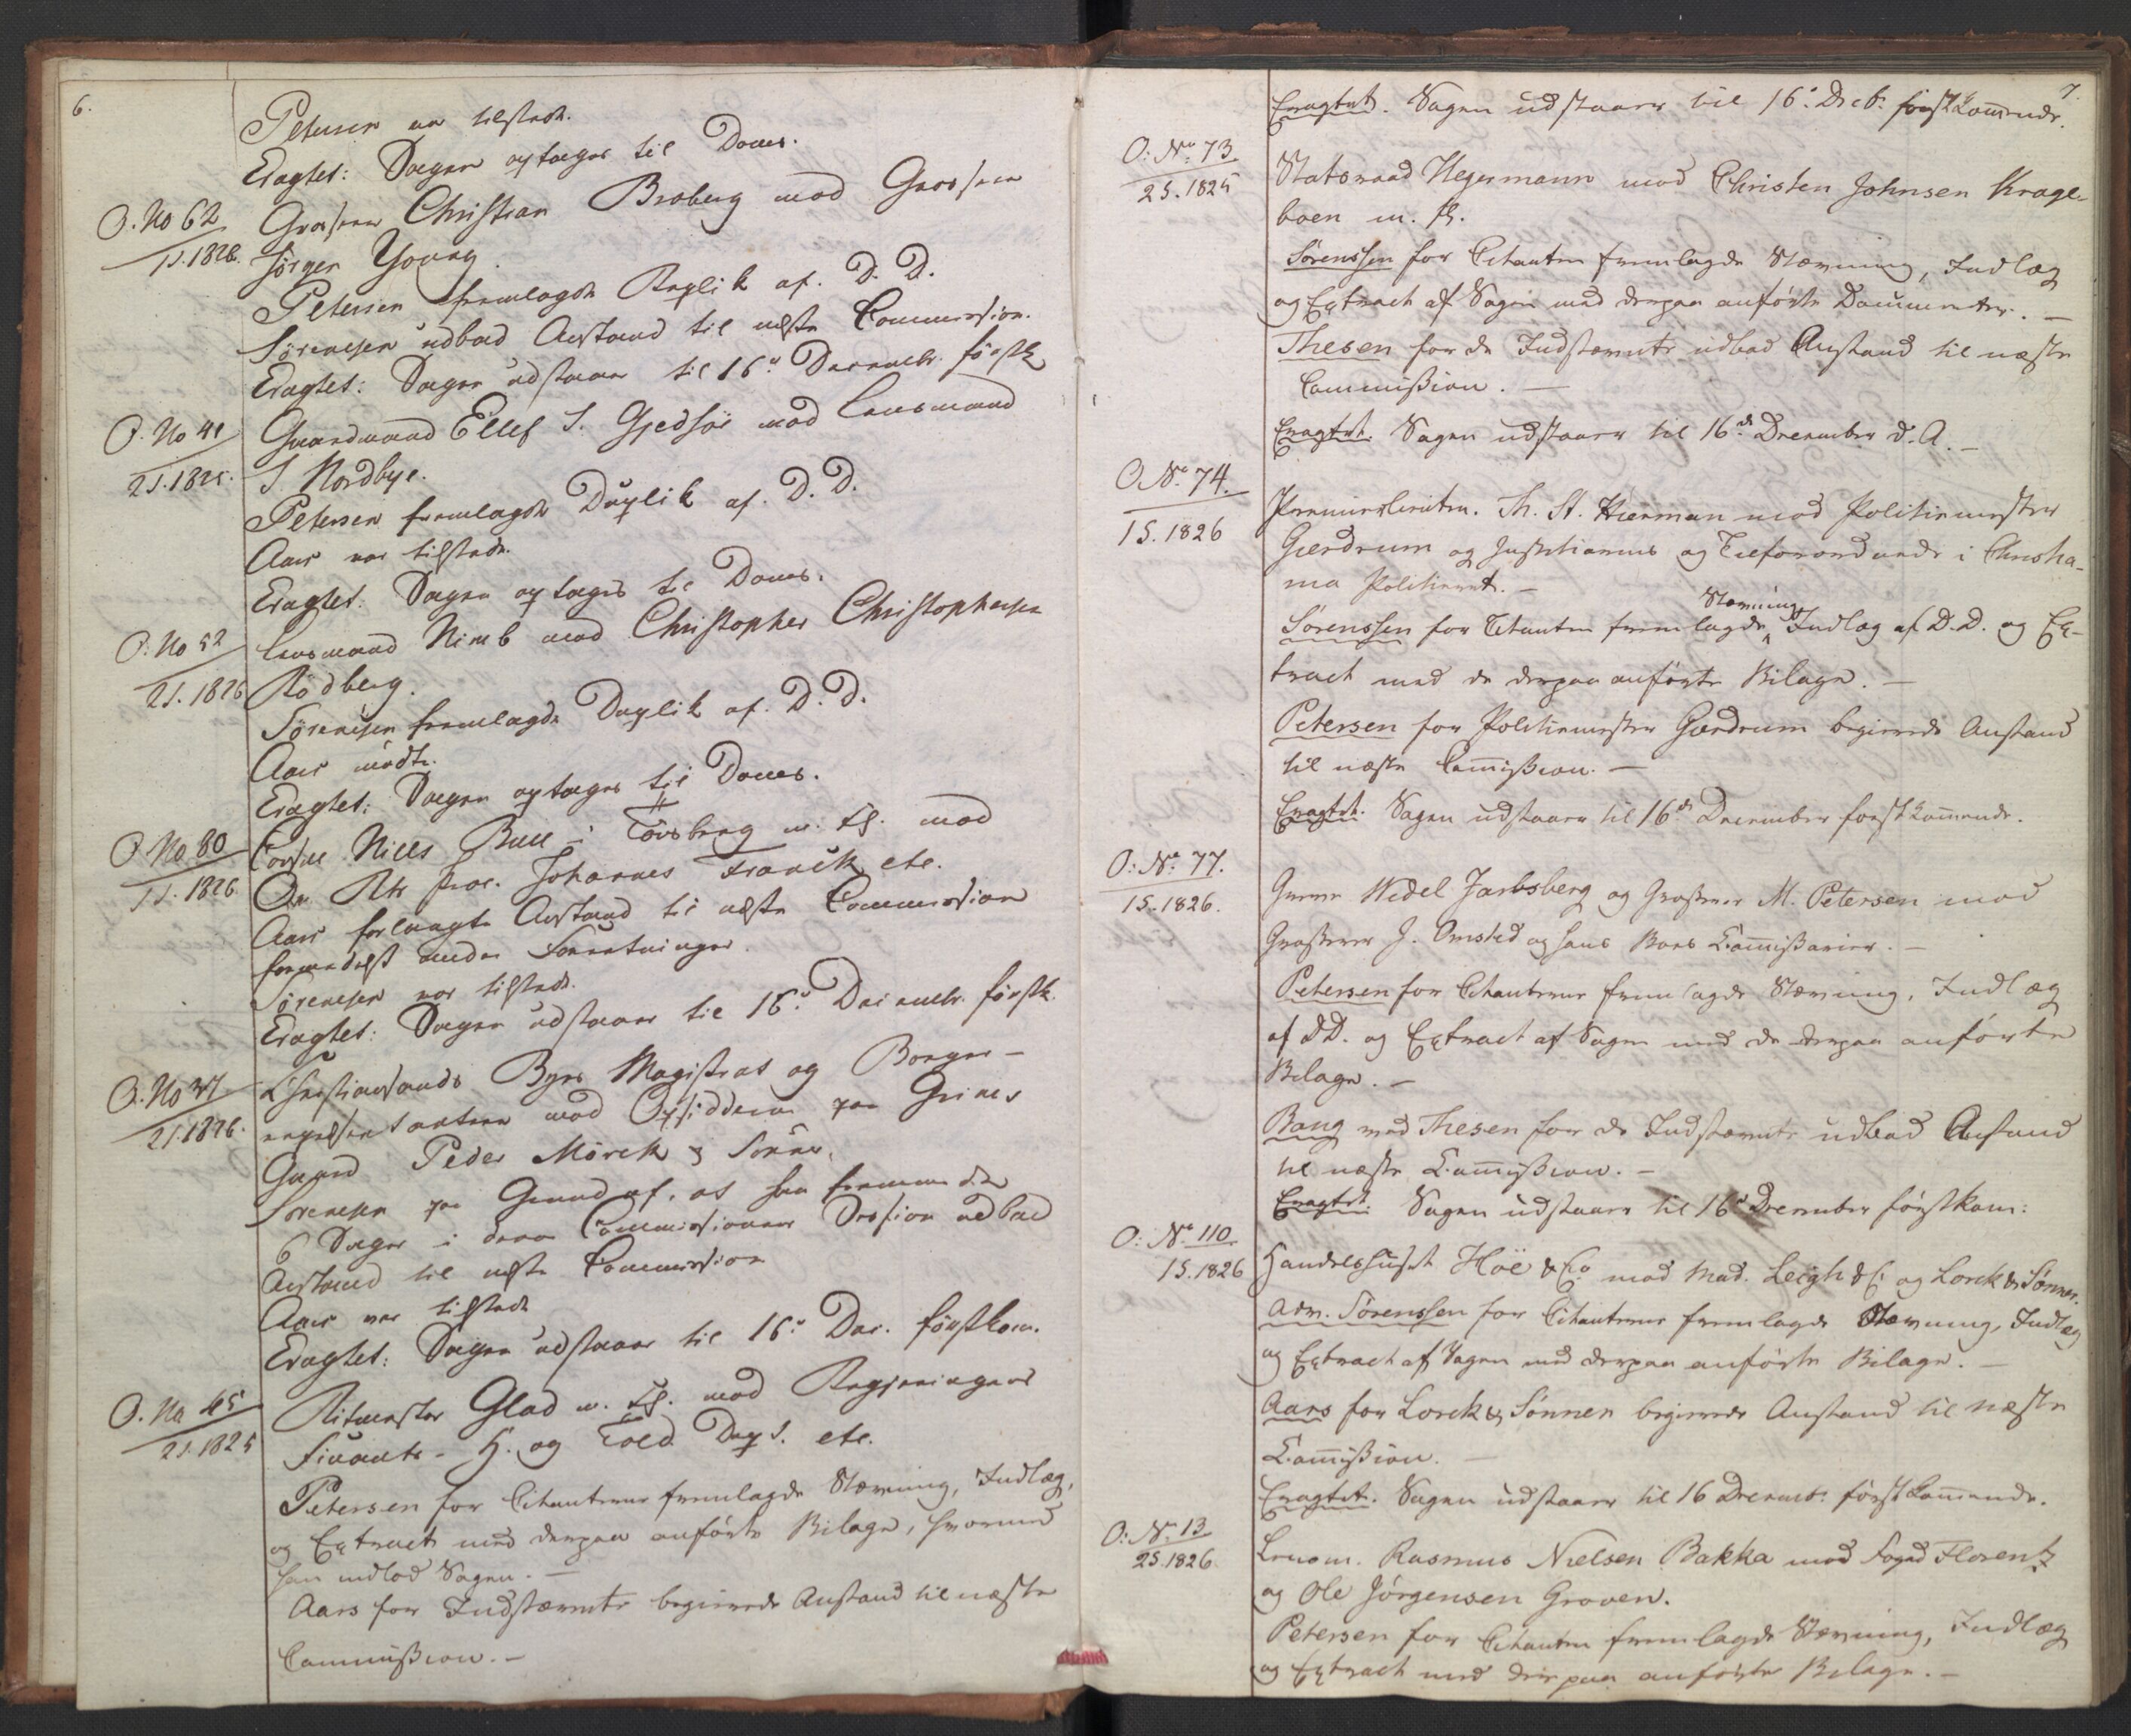 6.
Petersen var tilstede.
Eragtet: Sagen optages til Doms.
O. No 62
1 S. 1826.
Grosserer Christian Broberg mod Grosserer
Jørgen Young.
Petersen fremlagde Replik af D. D.
Sørensen udbad Anstand til næste Commission.
Eragtet: Sagen udstaaer til 16de Decembr. førstk
O. No 41
2 S. 1825.
Gaardmand Ellef S. Gjedsøe mod Lensmand
S. Nordbye.
Petersen fremlagde Duplik af D. D.
Aars var tilstede.
Eragtet: Sagen optages til Doms.
O. No 52
2 S. 1826
Lensmand Nimb mod Christopher Christophersen
Rödberg.
Sørensen fremlagde Duplik af D. D.
Aars mødte.
Eragtet: Sagen optages til Doms.
O. No 80
1 S. 1826
Consul Niels Bull i Tönsberg m. fl. mod
Ov. Rts proc. Johannes Franck etc.
Aars forlangte Anstand til næste Commission
formedelst andre Forretninger.
Sørensen var tilstede.
Eragtet: Sagen udstaaer til 16de Decembr. førstk.
O. No 37
2 S. 1826.
Christiansands Byes Magistrat og Borger-
repræsentanter mod Opsidderne paa Grimes
Gaard Peder Mörck & Sönner.
Sørensen paa Grund af, at han fremmøder
6 Sager i denne Commissionens Session udbad
Anstand til næste Commission
Aars var tilstede
Eragtet: Sagen udstaaer til 16de Dec. førstkom.
O. No 65
2 S. 1825
Ritmester Glad m. fl. mod Regjeringens
Finants- H. og Told Dep S. etc.
Petersen for Citanterne fremlagde Stævning, Indlæg,
og Extract med derpaa anförte Bilage, hvormed
han indlod Sagen. —
Aars for Indstævnte begierede Anstand til næste
Commission. —
7.
Eragtet. Sagen udstaaer til 16de Decbr. førstkommende.
O: No 73
2 S. 1825
Statsraad Hegermann mod Christen Johnsen Krage-
boen m. fl.
Sørenssen for Citanten fremlagde Stævning, Indlæg
og Extract af Sagen med derpaa anförte Documenter. —
Thesen for de Indstævnte udbad Anstand til næste
Commission. —
Eragtet. Sagen udstaaer til 16de December d. A. —
O No 74.
1 S. 1826
Premierlieutn. Th. St. Hierman mod Politiemester
Gierdrum og Justitiarius og Tilforordnede i Christia-
nia Politieret. —
Stævning
Sørenssen for Citanten fremlagde ^ Indlæg af D. D. og Ex-
tract med de derpaa anförte Bilage. —
Petersen for Politiemester Gierdrum begierede Anstand
til næste Commission. —
Eragtet. Sagen udstaaer til 16de December førstkommende.
O: No 77.
1 S. 1826.
Greve Wedel Jarlsberg og Grosserer M. Petersen mod
Grosserer J. Omsted og hans Boes Commissarier. —
Petersen for Citanterne fremlagde Stævning, Indlæg
af DD. og Extract af Sagen med de derpaa anförte
Bilage. —
Bang med Thesen for de Indstævnte udbad Anstand
til næste Commission. —
Eragtet. Sagen udstaaer til 16de December førstkom:
O: No 110
1 S. 1826
Handelshuset Höe & Co mod Mad. Leigh & C. og Lorck & Sønner.
Adv. Sørenssen for Citanterne fremlagde Stævning, Indlæg
og Extract af Sagen med derpaa anförte Bilage. —
Aars for Lorck & Sønner begierede Anstand til næste
Commission. —
Eragtet. Sagen udstaaer til 16 Decembr. førstkommende.
O: No 13
2 S. 1826
Lensm. Rasmus Nielsen Bakka mod Foged Florentz
og Ole Jörgensen Groven.
Petersen for Citanten fremlagde Stævning, Indlæg
og Extract med derpaa anförte Bilage. —